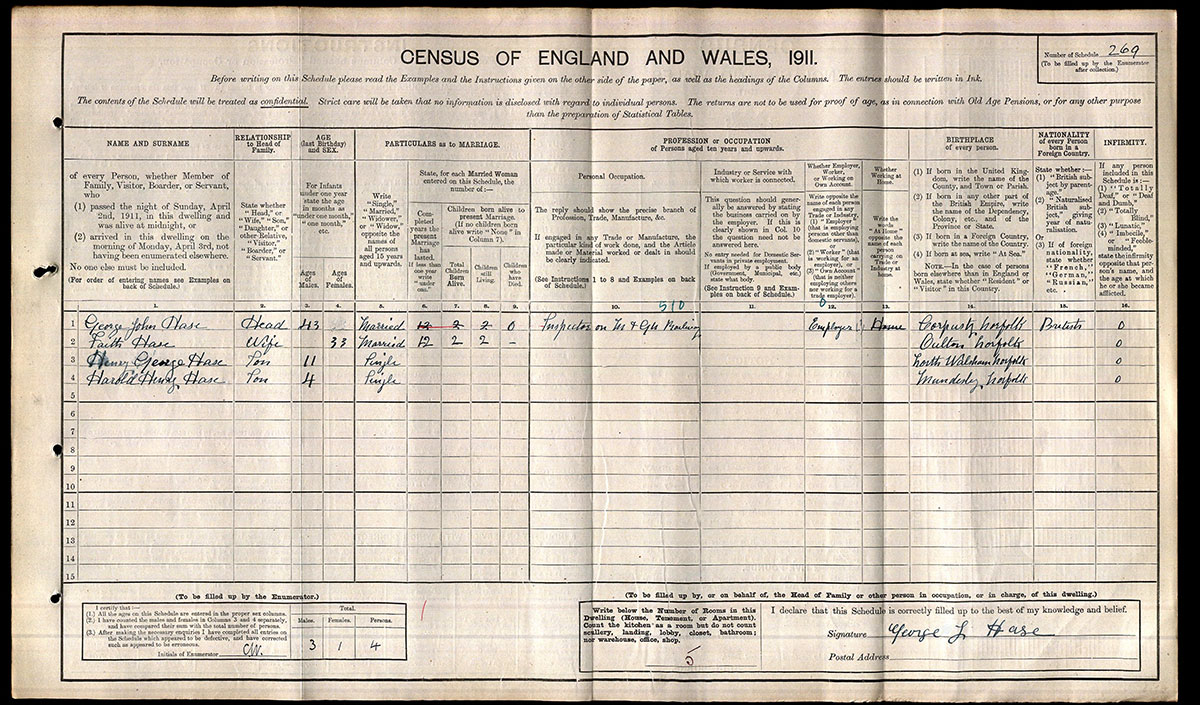 CENSUS OF ENGLAND AND WALES, 1911.
Number of Schedule 269
(To be filled up by the Enumerator after collection.)
Before writing on this Schedule please read the Examples and the Instructions given on the other side of the paper, as well as the headings of the Columns. The entries should be written in Ink.
The contents of the Schedule will be treated as confidential. Strict care will be taken that no information is disclosed with regard to individual persons. The returns are not to be used for proof of age, as in connection with Old Age Pensions, or for any other purpose
than the preparation of Statistical Tables.
NAME AND SURNAME
of every Person, whether Member of Family, Visitor, Boarder, or Servant, who
(1) passed the night of Sunday, April 2nd, 1911, in this dwelling and was alive at midnight, or
(2) arrived in this dwelling on the morning of Monday, April 3rd, not having been enumerated elsewhere.
No one else must be included.
(For order of entering names see Examples on back of Schedule.)
RELATIONSHIP to Head of Family.
State whether "Head," or "Wife," "Son," "Daughter," or other Relative, "Visitor," "Boarder," or "Servant."
AGE (last Birthday) and SEX.
For Infants under one year state the age in months as "under one month," "one month," etc.
Ages of Males.
Ages of Females.
PARTICULARS as to MARRIAGE.
Write "Single," "Married," "Widower," or "Widow," opposite the names of all persons aged 15 years and upwards.
State, for each Married Woman entered on this Schedule, the number of:—
Completed years the present Marriage has lasted. If less than one year write "under one."
Children born alive to present Marriage. (If no children born alive write "None" in Column 7).
Total Children Born Alive.
Children still Living.
Children who have Died.
PROFESSION or OCCUPATION of Persons aged ten years and upwards.
Personal Occupation.
The reply should show the precise branch of Profession, Trade, Manufacture, &c.
If engaged in any Trade or Manufacture, the particular kind of work done, and the Article made or Material worked or dealt in should be clearly indicated.
(See Instructions 1 to 8 and Examples on back of Schedule.)
Industry or Service with which worker is connected.
This question should generally be answered by stating the business carried on by the employer. If this is clearly shown in Col. 10 the question need not be answered here.
No entry needed for Domestic Servants in private employment. If employed by a public body (Government, Municipal, etc.) state what body.
(See Instruction 9 and Examples on back of Schedule.)
Whether Employer, Worker, or Working on Own Account.
Write opposite the name of each person engaged in any Trade or Industry, (1) "Employer" (that is employing persons other than domestic servants), or (2) "Worker" (that is working for an employer), or (3) "Own Account" (that is neither employing others nor working for a trade employer).
Whether Working at Home.
Write the words "At Home" opposite the name of each person carrying on Trade or Industry at Home.
BIRTHPLACE of every person.
(1) If born in the United Kingdom, write the name of the County, and Town or Parish.
(2) If born in any other part of the British Empire, write the name of the Dependency, Colony, etc., and of the Province or State.
(3) If born in a Foreign Country, write the name of the Country.
(4) If born at sea, write "At Sea."
NOTE.—In the case of persons born elsewhere than in England or Wales, state whether "Resident" or "Visitor" in this Country.
NATIONALITY of every Person born in a Foreign Country.
State whether :— (1) "British subject by parentage." (2) "Naturalised British subject," giving year of naturalisation. Or (3) If of foreign nationality, state whether "French," "German," "Russian," etc.
INFIRMITY.
If any person included in this Schedule is :— (1) "Totally Deaf," or "Deaf and Dumb," (2) "Totally Blind," (3) "Lunatic," (4) "Imbecile," or "Feeble-minded," state the infirmity opposite that person's name, and the age at which he or she became afflicted.
1. 2. 3. 4. 5. 6. 7. 8. 9. 10. 11. 12. 13. 14. 15. 16.
510
1 George John Hase Head 43 Married 12 2 2 0 Inspector on Employer Corpusty Norfolk British 0
2 Faith Hase Wife 33 Married 12 2 2 – Oulton Norfolk 0
3 Henry George Hase Son 11 Single North Walsham Norfolk 0
4 Harold Henry Hase Son 4 Single Mundesley Norfolk 0
5
6
7
8
9
10
11
12
13
14
15
(To be filled up by the Enumerator.)
I certify that:—
(1.) All the ages on this Schedule are entered in the proper sex columns.
(2.) I have counted the males and females in Columns 3 and 4 separately, and have compared their sum with the total number of persons.
(3.) After making the necessary enquiries I have completed all entries on the Schedule which appeared to be defective, and have corrected such as appeared to be erroneous.
Initials of Enumerator C.W.
Total.
Males. Females. Persons.
3 1 4
(To be filled up by, or on behalf of, the Head of Family or other person in occupation, or in charge, of this dwelling.)
Write below the Number of Rooms in this Dwelling (House, Tenement, or Apartment). Count the kitchen as a room but do not count scullery, landing, lobby, closet, bathroom; nor warehouse, office, shop.
5
I declare that this Schedule is correctly filled up to the best of my knowledge and belief.
Signature George J Hase
Postal Address